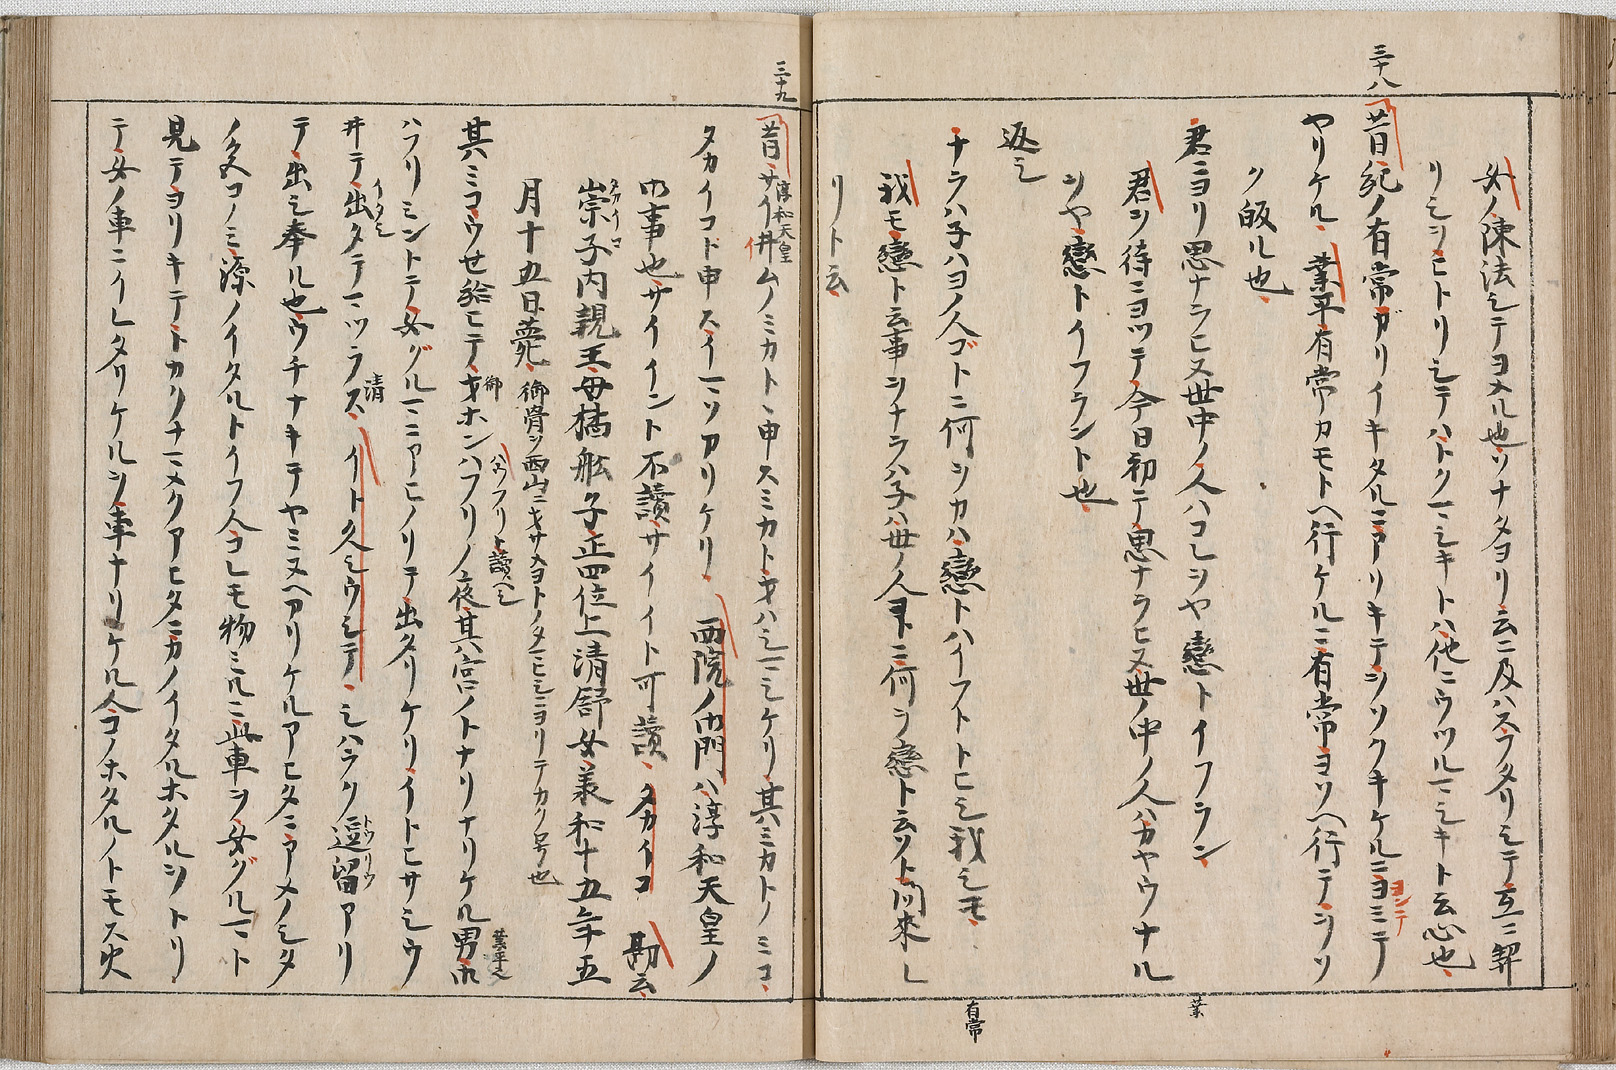 女ノ陳法シテヨメル也ソナタヨリ云ニ及ハスフタリシテ互ニ契
リシヲヒトリシテハトクマシキトハ他ニウツルマシキト云心也
三十八
昔紀ノ有常ガリイキタルニアリキテヲソクキケルニヨミテ
ヨンテ
ヤリケル業平有常カモトヘ行ケルニ有常ヨソヘ行テヲソ
ク皈ル也
君ニヨリ思ナラヒヌ世中ノ人ハコレヲヤ戀トイフラン
業
君ヲ待ニヨツテ今日初テ思ナラヒヌ世ノ中ノ人ハカヤウナル
ヲヤ戀トイフラント也
返シ
ナラハ子ハヨノ人ゴトニ何ヲカハ戀トハイフトトヒシ我シモ
有常
我モ戀ト云事ヲナラハ子ハ世ノ人コトニ何ヲ戀ト云ソト問來レ
リト云
三十九
昔サイ井ムノミカトト申スミカトオハシマシケリ其ミカトノミコ
淳和天皇
タカイコト申スイマソカリケリ 西院ノ御門ハ淳和天皇ノ
御事也サイイント不讀サイイト可讀 タカイコ 勘云
崇子内親王母橘舩子正四位上清野女義和十五年五
タカイコ
月十五日薨 御骨ヲ西山ニオサメヨトノタマヒシニヨリテカク号也
其ミコウセ給ヒテオホンハフリノ夜其宮ノトナリナリケル男御
御
ハウフリト讀ヘシ
業平也
ハフリミントテ女グルマニアヒノリテ出タリケリイトヒサシウ
井テ出タテマツラス イト久シウシテ シハラク逗留アリ
イタシ
清
トウリウ
テ出シ奉ル也ウチナキテヤミヌヘアリケルアヒタニアメノシタ
ノ色コノミ源ノイタルトイフ人コレモ物ミルニ此車ヲ女グルマト
見テヨリキテトカクナマメクアヒタニカノイタルホタルヲトリ
テ女ノ車ニイレタリケルヲ車ナリケル人コノホタルノトモス火